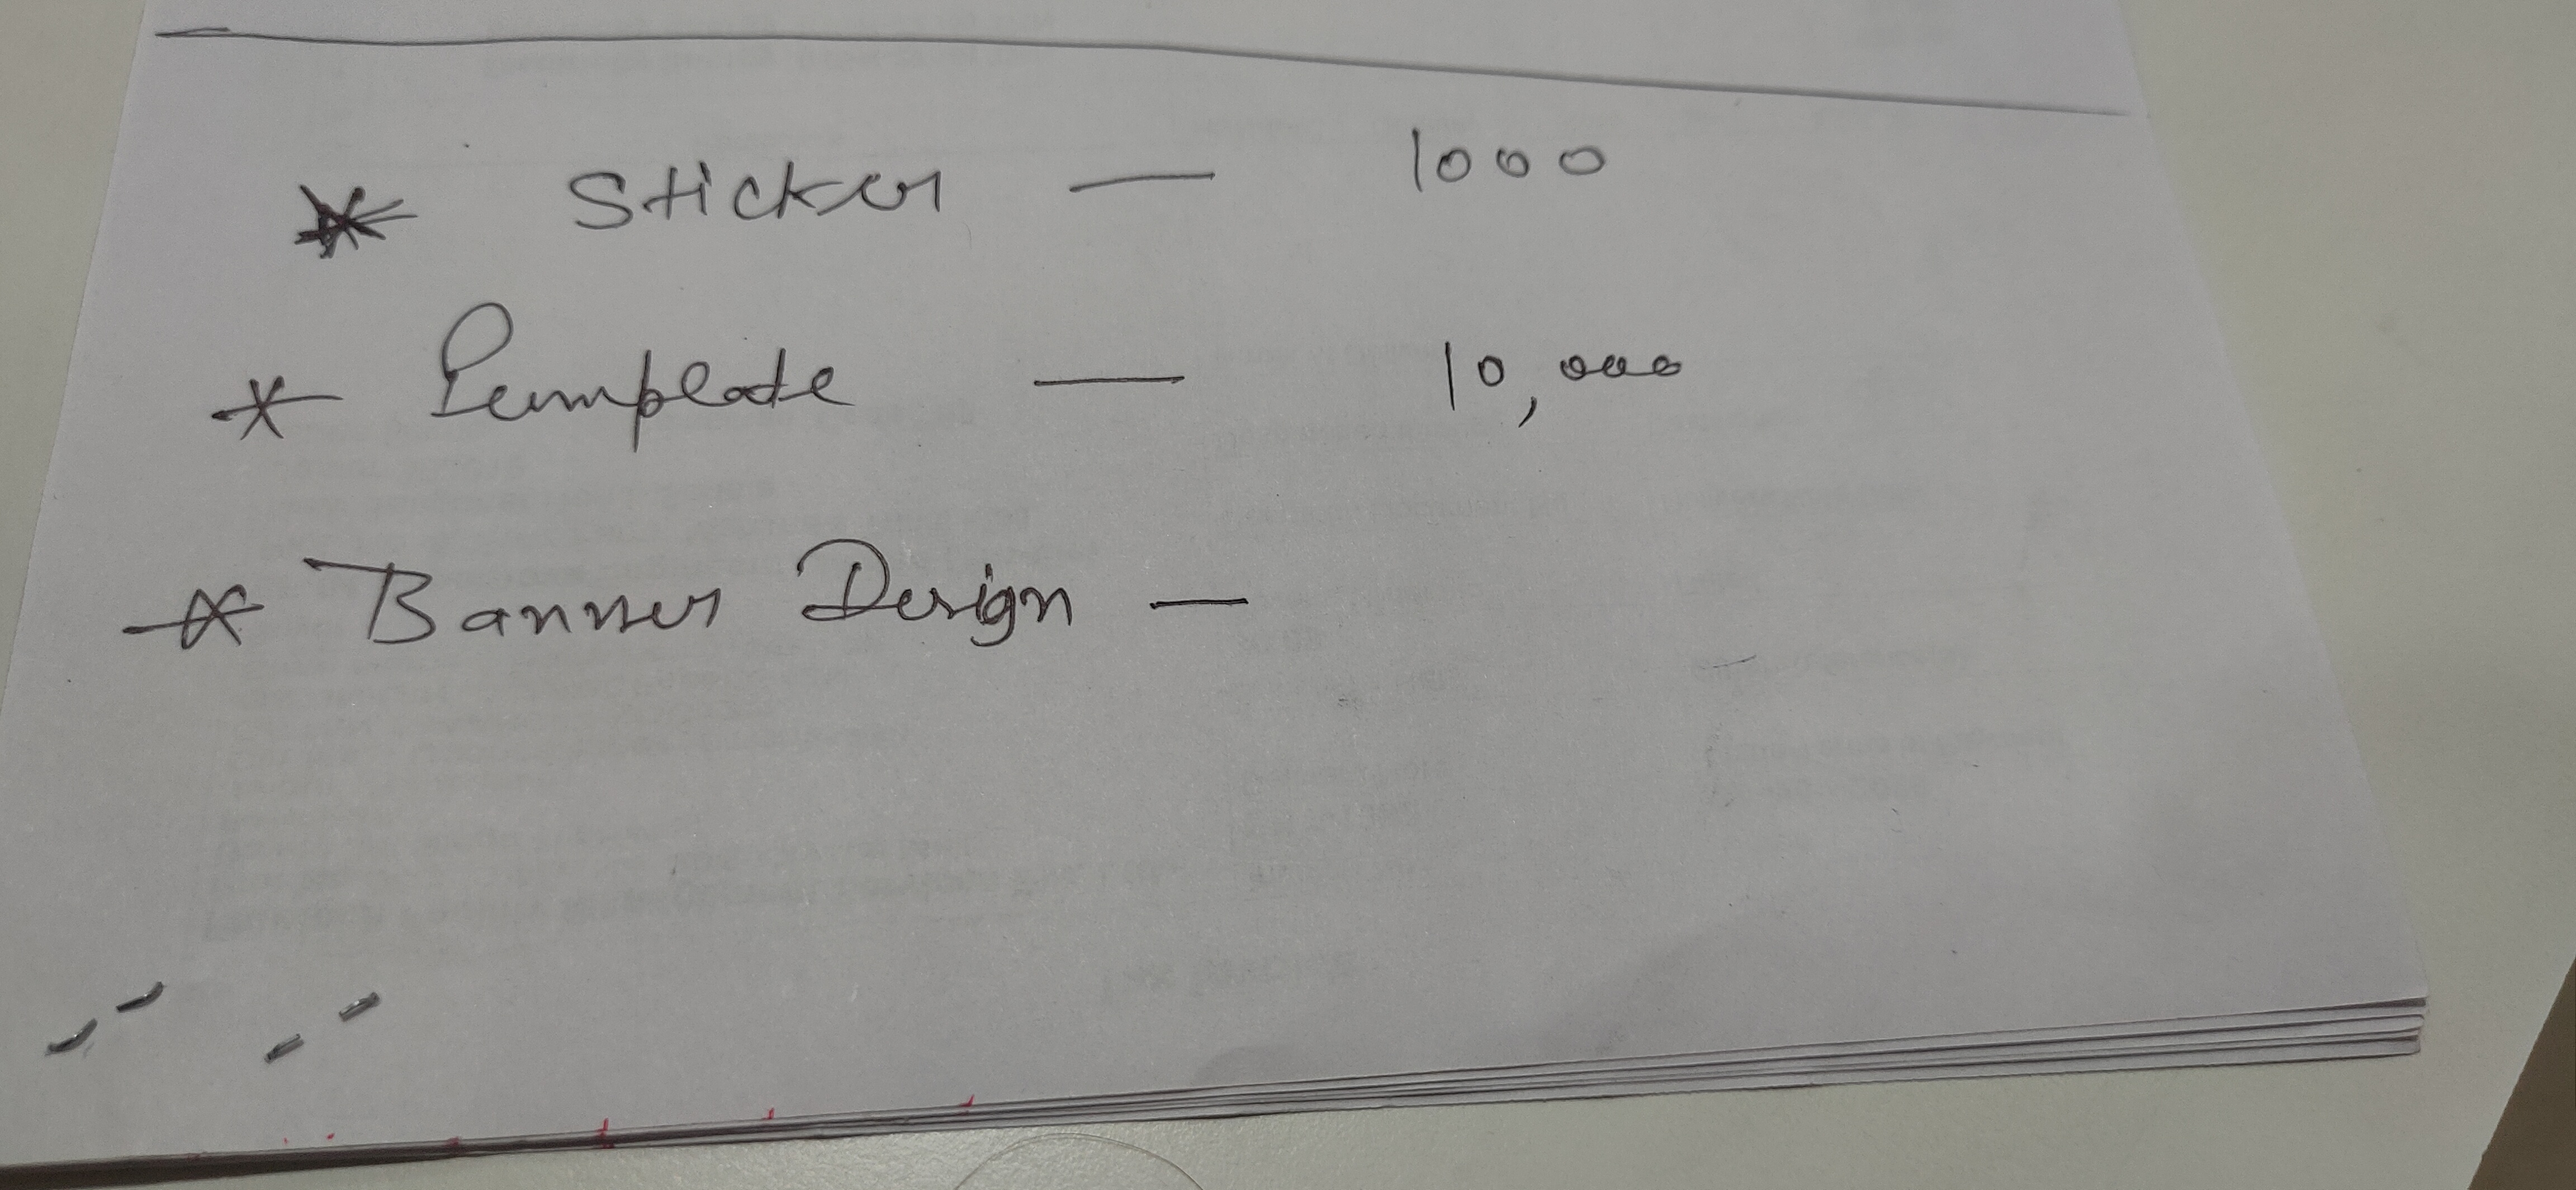 * Sticker — 1000
* Pumplate — 10,000
* Banner Design —